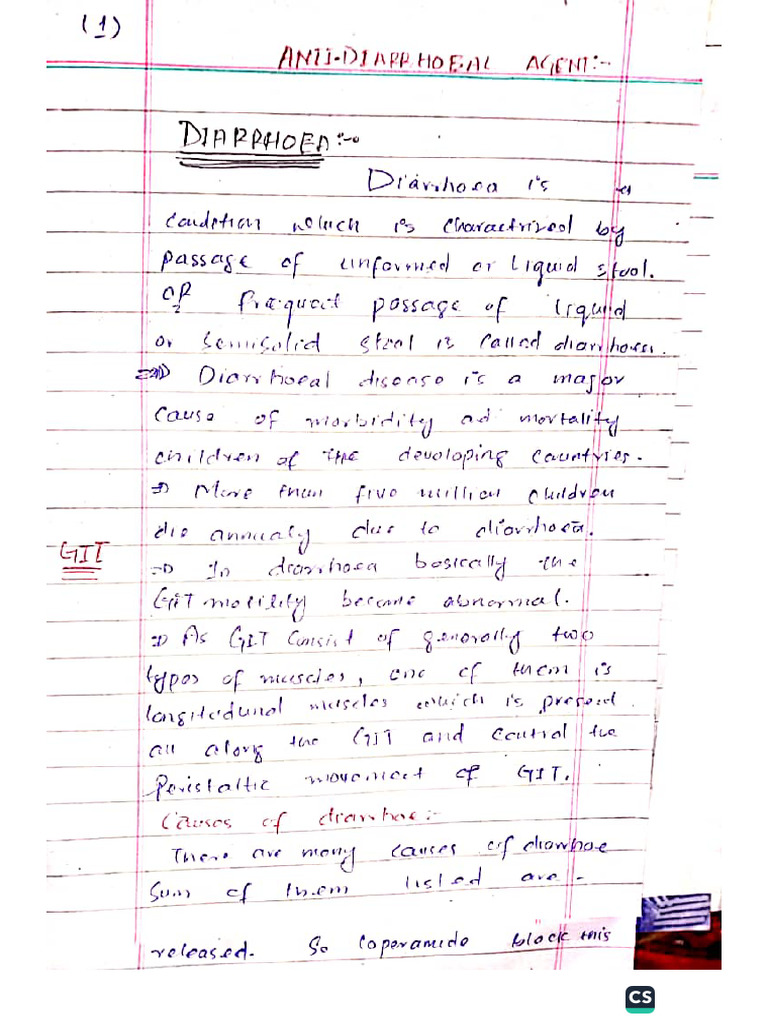 (1)
ANTI-DIARRHOEAL AGENT:-
DIARRHOEA:-
Diarrhoea is a
condition which is charactrized by
passage of unformed or liquid stool.
OR frequent passage of liquid
or semisolid stool is called diarrhoea.
⇒ Diarrhoeal disease is a major
cause of morbidity ad mortality
children of the devoloping countries.
⇒ More than five million children
die annualy due to diarrhoea.
GIT
⇒ In diarrhoea basically the
GIT motility become abnormal.
⇒ As GIT consist of generally two
types of muscles, one of them is
longitudunal muscles which is present
all along the GIT and control the
Peristaltic movement of GIT.
Causes of diarrhoe:-
There are many causes of diarrhoe
Sum of them listed are -
released. So loperamide block this
CS